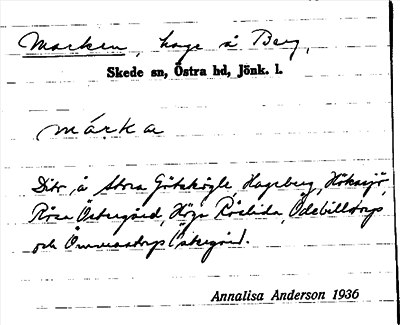 Marken, hage å Berg,
Skede sn, Östra hd, Jönk. l.
márka
Dito å Stora Götestögle, Hageberg, Höksjö,
Rösa Östergård, Höga Röslida, Ödebilltorp
och Östergård.
Annalisa Anderson 1936